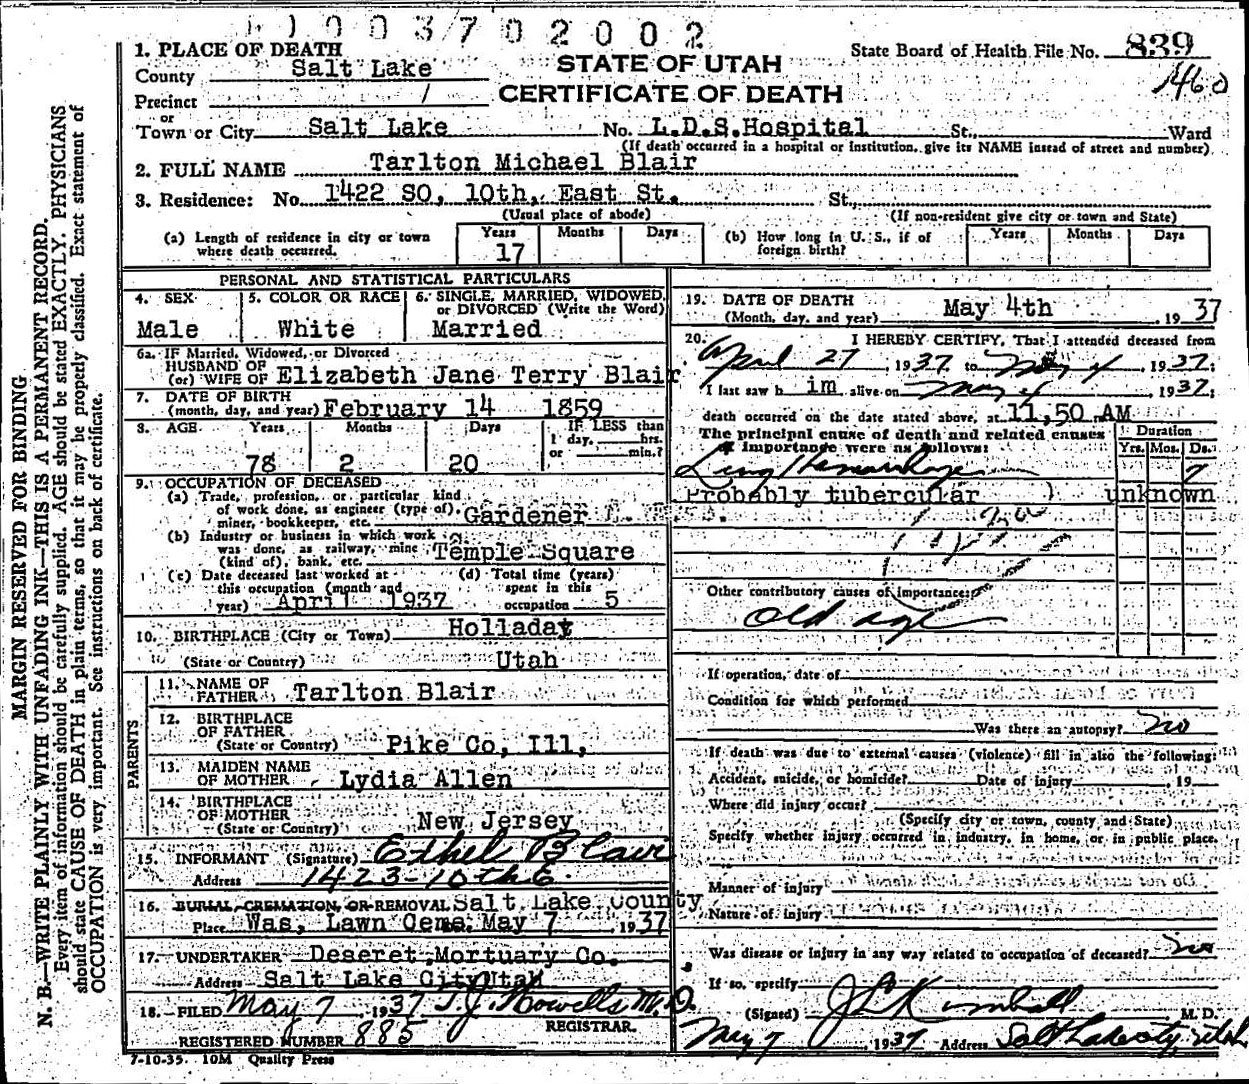 1003702002
1. PLACE OF DEATH
State Board of Health File No. 839
County Salt Lake
STATE OF UTAH
1460
Precinct 1
CERTIFICATE OF DEATH
or
Town or City Salt Lake No. L.D.S. Hospital St., Ward
(If death occurred in a hospital or institution, give its NAME instead of street and number)
2. FULL NAME Tarlton Michael Blair
3. Residence: No. 1422 SO, 10th, East St. St.,
(Usual place of abode) (If non-resident give city or town and State)
(a) Length of residence in city or town where death occurred. Years 17 Months Days
(b) How long in U. S., if of foreign birth? Years Months Days
PERSONAL AND STATISTICAL PARTICULARS
4. SEX Male
5. COLOR OR RACE White
6. SINGLE, MARRIED, WIDOWED, or DIVORCED (Write the Word) Married
6a. IF Married, Widowed, or Divorced
HUSBAND OF
(or) WIFE OF Elizabeth Jane Terry Blair
7. DATE OF BIRTH
(month, day, and year) February 14 1859
8. AGE Years Months Days IF LESS than
1 day, hrs.
or min.?
78 2 20
9. OCCUPATION OF DECEASED
(a) Trade, profession, or particular kind
of work done, as engineer (type of),
miner, bookkeeper, etc. Gardener
(b) Industry or business in which work
was done, as railway, mine
(kind of), bank, etc. Temple Square
(c) Date deceased last worked at
this occupation (month and
year) April 1937
(d) Total time (years)
spent in this
occupation 5
10. BIRTHPLACE (City or Town) Holladay
(State or Country) Utah
PARENTS
11. NAME OF
FATHER Tarlton Blair
12. BIRTHPLACE
OF FATHER
(State or Country) Pike Co, Ill,
13. MAIDEN NAME
OF MOTHER Lydia Allen
14. BIRTHPLACE
OF MOTHER
(State or Country) New Jersey
15. INFORMANT (Signature) Ethel Blair
Address 1423-10th E.
16. BURIAL, CREMATION, OR REMOVAL Salt Lake county
Place Was, Lawn Ceme. May 7 1937
17. UNDERTAKER Deseret Mortuary Co.
Address Salt Lake City Utah
18. FILED May 7 1937 T.J. Howells M.D.
REGISTRAR.
REGISTERED NUMBER 885
7-10-35. 10M Quality Press
19. DATE OF DEATH
(Month, day, and year) May 4th , 1937
20. I HEREBY CERTIFY, That I attended deceased from
April 27, 1937 to May 4, 1937;
I last saw him alive on May 4, 1937;
death occurred on the date stated above, at 11,50 AM
The principal cause of death and related causes
of importance were as follows:
Duration
Yrs. Mos. Ds.
Lung Hemorrhage 7
Probably tubercular ) unknown
Other contributory causes of importance:
Old age
If operation, date of
Condition for which performed
Was there an autopsy? no
If death was due to external causes (violence) fill in also the following:
Accident, suicide, or homicide? Date of injury , 19
Where did injury occur?
(Specify city or town, county and State)
Specify whether injury occurred in industry, in home, or in public place.
Manner of injury
Nature of injury
Was disease or injury in any way related to occupation of deceased? no
If so, specify
(Signed) J L Kimball M. D.
May 7, 1937 Address Salt Lake City, Utah
MARGIN RESERVED FOR BINDING
N. B.—WRITE PLAINLY WITH UNFADING INK—THIS IS A PERMANENT RECORD.
Every item of information should be carefully supplied. AGE should be stated EXACTLY. PHYSICIANS
should state CAUSE OF DEATH in plain terms, so that it may be properly classified. Exact statement of
OCCUPATION is very important. See instructions on back of certificate.